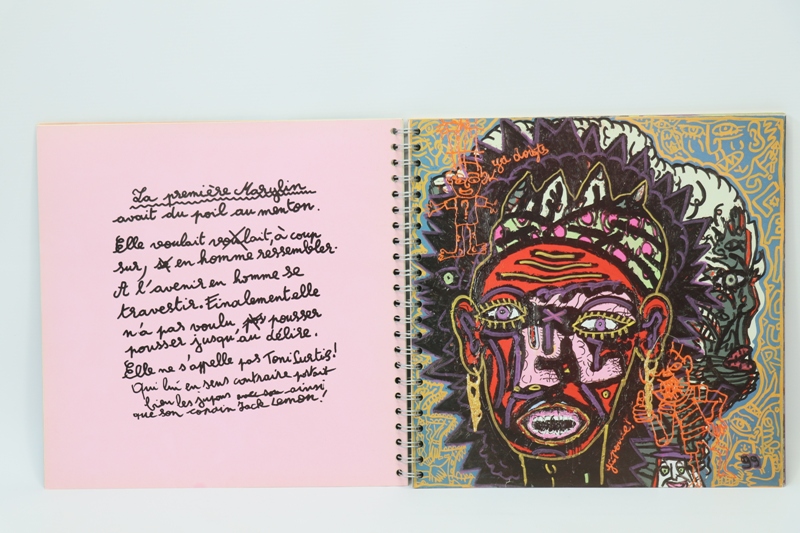 La première Marylin
avait du poil au menton.
Elle voulait voulait, à coup
sur, se en homme ressembler.
A l'avenir en homme se
travestir. Finalement elle
n'a pas voulu, pas pousser
pousser jusqu'au délire.
Elle ne s'appelle pas Toni Curtis!
Qui lui en sens contraire portait
bien les jupons avec son ainsi
que son copain Jack Lemon!
doigts
99